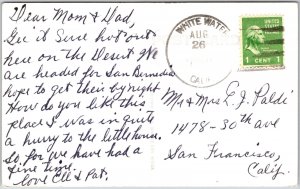 Dear Mom & Dad,
Gee it sure hot out
here on the Desert. We
are headed for San Bernadio
hope to get their by night
How do you like this
place I was in quite
a hurry to the little house.
So far we have had a
fine time.
love Ell & Pat.
WHITE WATER
AUG
26
CALIF.
1 CENT 1
Mr & Mrs E. J. Paldi
1478-30th ave
San Francisco,
Calif.